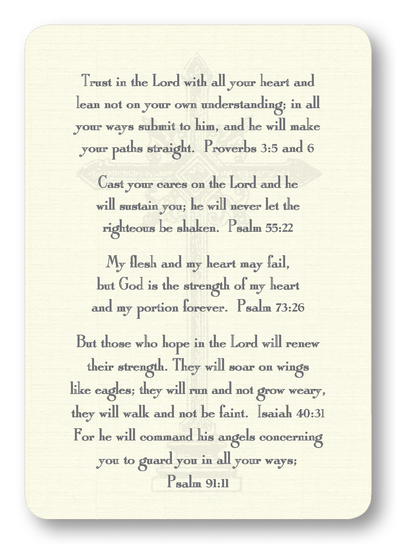 Trust in the Lord with all your heart and
lean not on your own understanding; in all
your ways submit to him, and he will make
your paths straight. Proverbs 3:5 and 6
Cast your cares on the Lord and he
will sustain you; he will never let the
righteous be shaken. Psalm 55:22
My flesh and my heart may fail,
but God is the strength of my heart
and my portion forever. Psalm 73:26
But those who hope in the Lord will renew
their strength. They will soar on wings
like eagles; they will run and not grow weary,
they will walk and not be faint. Isaiah 40:31
For he will command his angels concerning
you to guard you in all your ways;
Psalm 91:11